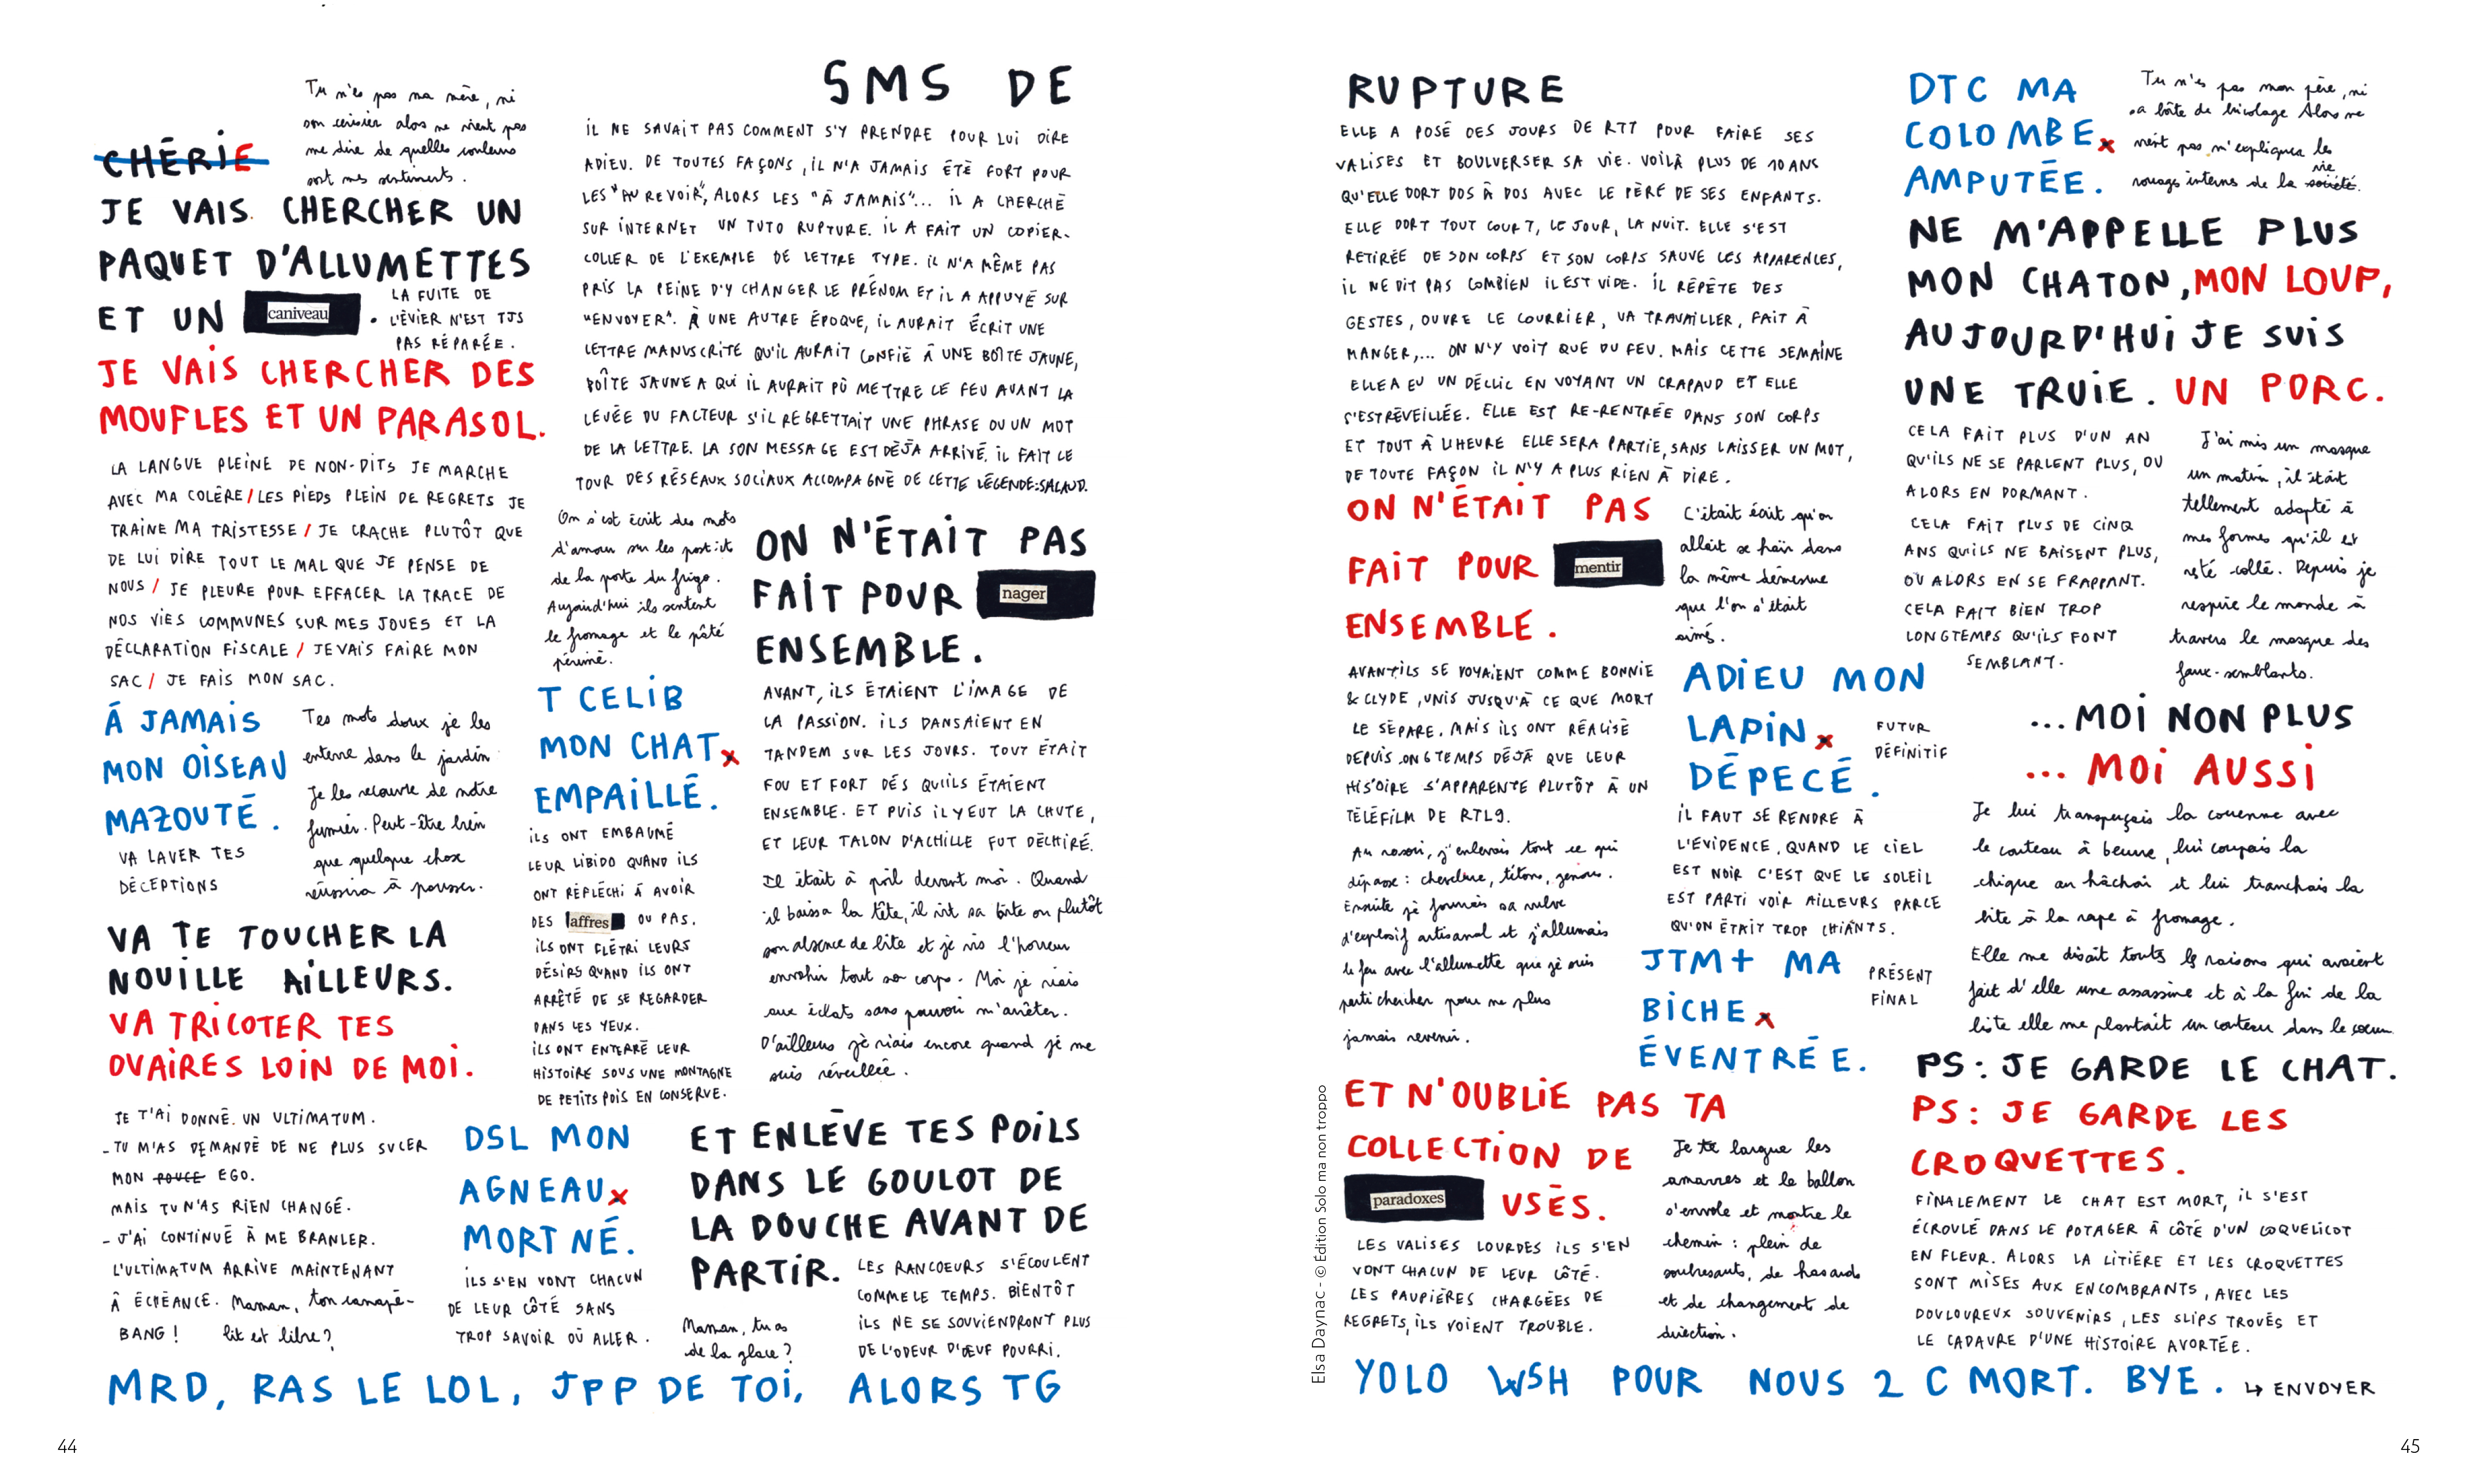 SMS DE RUPTURE
CHÉRIE
Tu n'es pas ma mère, ni
son cerisier alors ne vient pas
me dire de quelles couleurs
sont mes sentiments.
JE VAIS CHERCHER UN
PAQUET D'ALLUMETTES
ET UN caniveau.
LA FUITE DE
L'ÉVIER N'EST TJS
PAS RÉPARÉE.
JE VAIS CHERCHER DES
MOUFLES ET UN PARASOL.
LA LANGUE PLEINE DE NON-DITS JE MARCHE
AVEC MA COLÈRE / LES PIEDS PLEIN DE REGRETS JE
TRAINE MA TRISTESSE / JE CRACHE PLUTÔT QUE
DE LUI DIRE TOUT LE MAL QUE JE PENSE DE
NOUS / JE PLEURE POUR EFFACER LA TRACE DE
NOS VIES COMMUNES SUR MES JOUES ET LA
DÉCLARATION FISCALE / JE VAIS FAIRE MON
SAC / JE FAIS MON SAC.
À JAMAIS
MON OISEAU
MAZOUTÉ.
VA LAVER TES
DÉCEPTIONS
Tes mots doux je les
enterre dans le jardin
Je les recouvre de notre
fumier. Peut-être bien
que quelque chose
réussira à pousser.
VA TE TOUCHER LA
NOUILLE AILLEURS.
VA TRICOTER TES
OVAIRES LOIN DE MOI.
JE T'AI DONNÉ UN ULTIMATUM.
- TU M'AS DEMANDÉ DE NE PLUS SUCER
MON POUCE EGO.
MAIS TU N'AS RIEN CHANGÉ.
- J'AI CONTINUÉ À ME BRANLER.
L'ULTIMATUM ARRIVE MAINTENANT
À ÉCHÉANCE. Maman, ton canapé-
BANG ! lit est libre ?
IL NE SAVAIT PAS COMMENT S'Y PRENDRE POUR LUI DIRE
ADIEU. DE TOUTES FAÇONS, IL N'A JAMAIS ÉTÉ FORT POUR
LES "AU REVOIR", ALORS LES "À JAMAIS"... IL A CHERCHÉ
SUR INTERNET UN TUTO RUPTURE. IL A FAIT UN COPIER-
COLLER DE L'EXEMPLE DE LETTRE TYPE. IL N'A MÊME PAS
PRIS LA PEINE D'Y CHANGER LE PRÉNOM ET IL A APPUYÉ SUR
"ENVOYER". À UNE AUTRE ÉPOQUE, IL AURAIT ÉCRIT UNE
LETTRE MANUSCRITE QU'IL AURAIT CONFIÉ À UNE BOÎTE JAUNE,
BOÎTE JAUNE A QUI IL AURAIT PÛ METTRE LE FEU AVANT LA
LEVÉE DU FACTEUR S'IL REGRETTAIT UNE PHRASE OU UN MOT
DE LA LETTRE. LA SON MESSAGE EST DÉJÀ ARRIVÉ. IL FAIT LE
TOUR DES RÉSEAUX SOCIAUX ACCOMPAGNÉ DE CETTE LÉGENDE: SALAUD.
On s'est écrit des mots
d'amour sur les post-it
de la porte du frigo.
Aujourd'hui ils sentent
le fromage et le pâté
périmé.
ON N'ÉTAIT PAS
FAIT POUR nager
ENSEMBLE.
T CELIB
MON CHAT x
EMPAILLÉ.
ILS ONT EMBAUMÉ
LEUR LIBIDO QUAND ILS
ONT RÉFLÉCHI À AVOIR
DES affres OU PAS.
ILS ONT FLÉTRI LEURS
DÉSIRS QUAND ILS ONT
ARRÊTÉ DE SE REGARDER
DANS LES YEUX.
ILS ONT ENTERRÉ LEUR
HISTOIRE SOUS UNE MONTAGNE
DE PETITS POIS EN CONSERVE.
AVANT, ILS ÉTAIENT L'IMAGE DE
LA PASSION. ILS DANSAIENT EN
TANDEM SUR LES JOURS. TOUT ÉTAIT
FOU ET FORT DÉS QU'ILS ÉTAIENT
ENSEMBLE. ET PUIS IL Y EUT LA CHUTE,
ET LEUR TALON D'ACHILLE FUT DÉCHIRÉ.
Il était à poil devant moi. Quand
il baissa la tête, il vit sa bite ou plutôt
son absence de bite et je vis l'horreur
envahir tout son corps. Moi je riais
aux éclats sans pouvoir m'arrêter.
D'ailleurs je riais encore quand je me
suis réveillée.
DSL MON
AGNEAU x
MORT NÉ.
ILS S'EN VONT CHACUN
DE LEUR CÔTÉ SANS
TROP SAVOIR OÙ ALLER.
ET ENLÈVE TES POILS
DANS LE GOULOT DE
LA DOUCHE AVANT DE
PARTIR.
LES RANCOEURS S'ÉCOULENT
COMME LE TEMPS. BIENTÔT
ILS NE SE SOUVIENDRONT PLUS
DE L'ODEUR D'ŒUF POURRI.
Maman, tu as
de la glace ?
MRD, RAS LE LOL, JPP DE TOI, ALORS TG
44
ELLE A POSÉ DES JOURS DE RTT POUR FAIRE SES
VALISES ET BOULVERSER SA VIE. VOILÀ PLUS DE 10 ANS
QU'ELLE DORT DOS À DOS AVEC LE PÈRE DE SES ENFANTS.
ELLE DORT TOUT COURT, LE JOUR, LA NUIT. ELLE S'EST
RETIRÉE DE SON CORPS ET SON CORPS SAUVE LES APPARENCES,
IL NE DIT PAS COMBIEN IL EST VIDE. IL RÉPÈTE DES
GESTES, OUVRE LE COURRIER, VA TRAVAILLER, FAIT À
MANGER,... ON N'Y VOIT QUE DU FEU. MAIS CETTE SEMAINE
ELLE A EU UN DÉCLIC EN VOYANT UN CRAPAUD ET ELLE
S'EST RÉVEILLÉE. ELLE EST RE-RENTRÉE DANS SON CORPS
ET TOUT À L'HEURE ELLE SERA PARTIE, SANS LAISSER UN MOT,
DE TOUTE FAÇON IL N'Y A PLUS RIEN À DIRE.
ON N'ÉTAIT PAS
FAIT POUR mentir
ENSEMBLE.
C'était écrit qu'on
allait se haïr dans
la même démesure
que l'on s'était
aimé.
AVANT ILS SE VOYAIENT COMME BONNIE
& CLYDE, UNIS JUSQU'À CE QUE MORT
LE SÉPARE. MAIS ILS ONT RÉALISÉ
DEPUIS LONGTEMPS DÉJÀ QUE LEUR
HISTOIRE S'APPARENTE PLUTÔT À UN
TÉLÉFILM DE RTL9.
Au rasoir, j'enlevais tout ce qui
dépasse : chevelure, tétons, genoux.
Ensuite je fourrais sa vulve
d'explosif artisanal et j'allumais
le feu avec l'allumette que je suis
parti chercher pour ne plus
jamais revenir.
ADIEU MON
LAPIN x
DÉPECÉ.
FUTUR
DÉFINITIF
IL FAUT SE RENDRE À
L'ÉVIDENCE. QUAND LE CIEL
EST NOIR C'EST QUE LE SOLEIL
EST PARTI VOIR AILLEURS PARCE
QU'ON ÉTAIT TROP CHIANTS.
JTM+ MA
BICHE x
ÉVENTRÉE.
PRÉSENT
FINAL
ET N'OUBLIE PAS TA
COLLECTION DE
paradoxes USÉS.
LES VALISES LOURDES ILS S'EN
VONT CHACUN DE LEUR CÔTÉ.
LES PAUPIÈRES CHARGÉES DE
REGRETS, ILS VOIENT TROUBLE.
Je te largue les
amarres et le ballon
s'envole et montre le
chemin : plein de
soubresauts, de hasards
et de changement de
direction.
DTC MA
COLOMBE x
AMPUTÉE.
Tu n'es pas mon père, ni
sa boîte de bricolage Alors ne
vient pas m'expliquer les
rouages internes de la société vie.
NE M'APPELLE PLUS
MON CHATON, MON LOUP,
AUJOURD'HUI JE SUIS
UNE TRUIE. UN PORC.
CELA FAIT PLUS D'UN AN
QU'ILS NE SE PARLENT PLUS, OU
ALORS EN DORMANT.
CELA FAIT PLUS DE CINQ
ANS QU'ILS NE BAISENT PLUS,
OU ALORS EN SE FRAPPANT.
CELA FAIT BIEN TROP
LONGTEMPS QU'ILS FONT
SEMBLANT.
J'ai mis un masque
un matin, il était
tellement adapté à
mes formes qu'il est
resté collé. Depuis je
respire le monde à
travers le masque des
faux-semblants.
...MOI NON PLUS
... MOI AUSSI
Je lui transperçais la couenne avec
le couteau à beurre, lui coupais la
chique au hâchoir et lui tranchais la
bite à la rape à fromage.
Elle me disait toutes les raisons qui avaient
fait d'elle une assassine et à la fin de la
liste elle me plantait un couteau dans le coeur.
PS : JE GARDE LE CHAT.
PS : JE GARDE LES
CROQUETTES.
FINALEMENT LE CHAT EST MORT, IL S'EST
ÉCROULÉ DANS LE POTAGER À CÔTÉ D'UN COQUELICOT
EN FLEUR. ALORS LA LITIÈRE ET LES CROQUETTES
SONT MISES AUX ENCOMBRANTS, AVEC LES
DOULOUREUX SOUVENIRS, LES SLIPS TROUÉS ET
LE CADAVRE D'UNE HISTOIRE AVORTÉE.
YOLO WSH POUR NOUS 2 C MORT. BYE. ↳ ENVOYER
Elsa Daynac - © Édition Solo ma non troppo
45